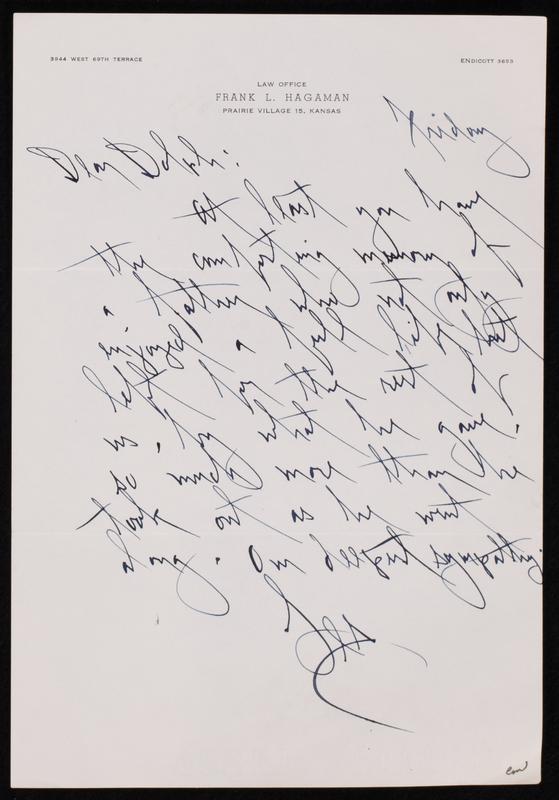 3944 WEST 69TH TERRACE
ENDICOTT 3693
LAW OFFICE
FRANK L. HAGAMAN
PRAIRIE VILLAGE 15, KANSAS
Friday
Dear Dolph:
At least you have
the comforting memory of
a father who not only
enjoyed a full life but
helped the rest of
us by what he gave.
so much more than he
took out as he went
along. Our deepest sympathy.